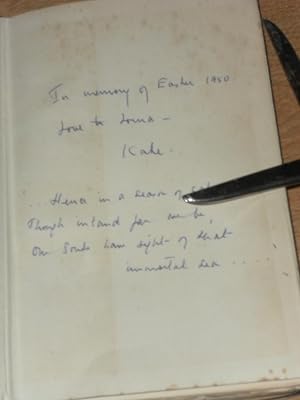 In memory of Easter 1950
Love to Lorna –
Kate.
... Hence in a season of
Though inland far we be,
Our Souls have sight of that
immortal sea .....